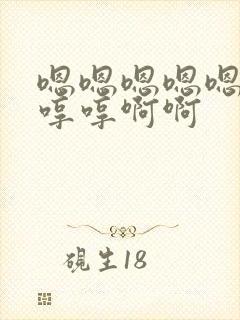 嗯嗯嗯嗯嗯
哼哼啊啊
砚生18